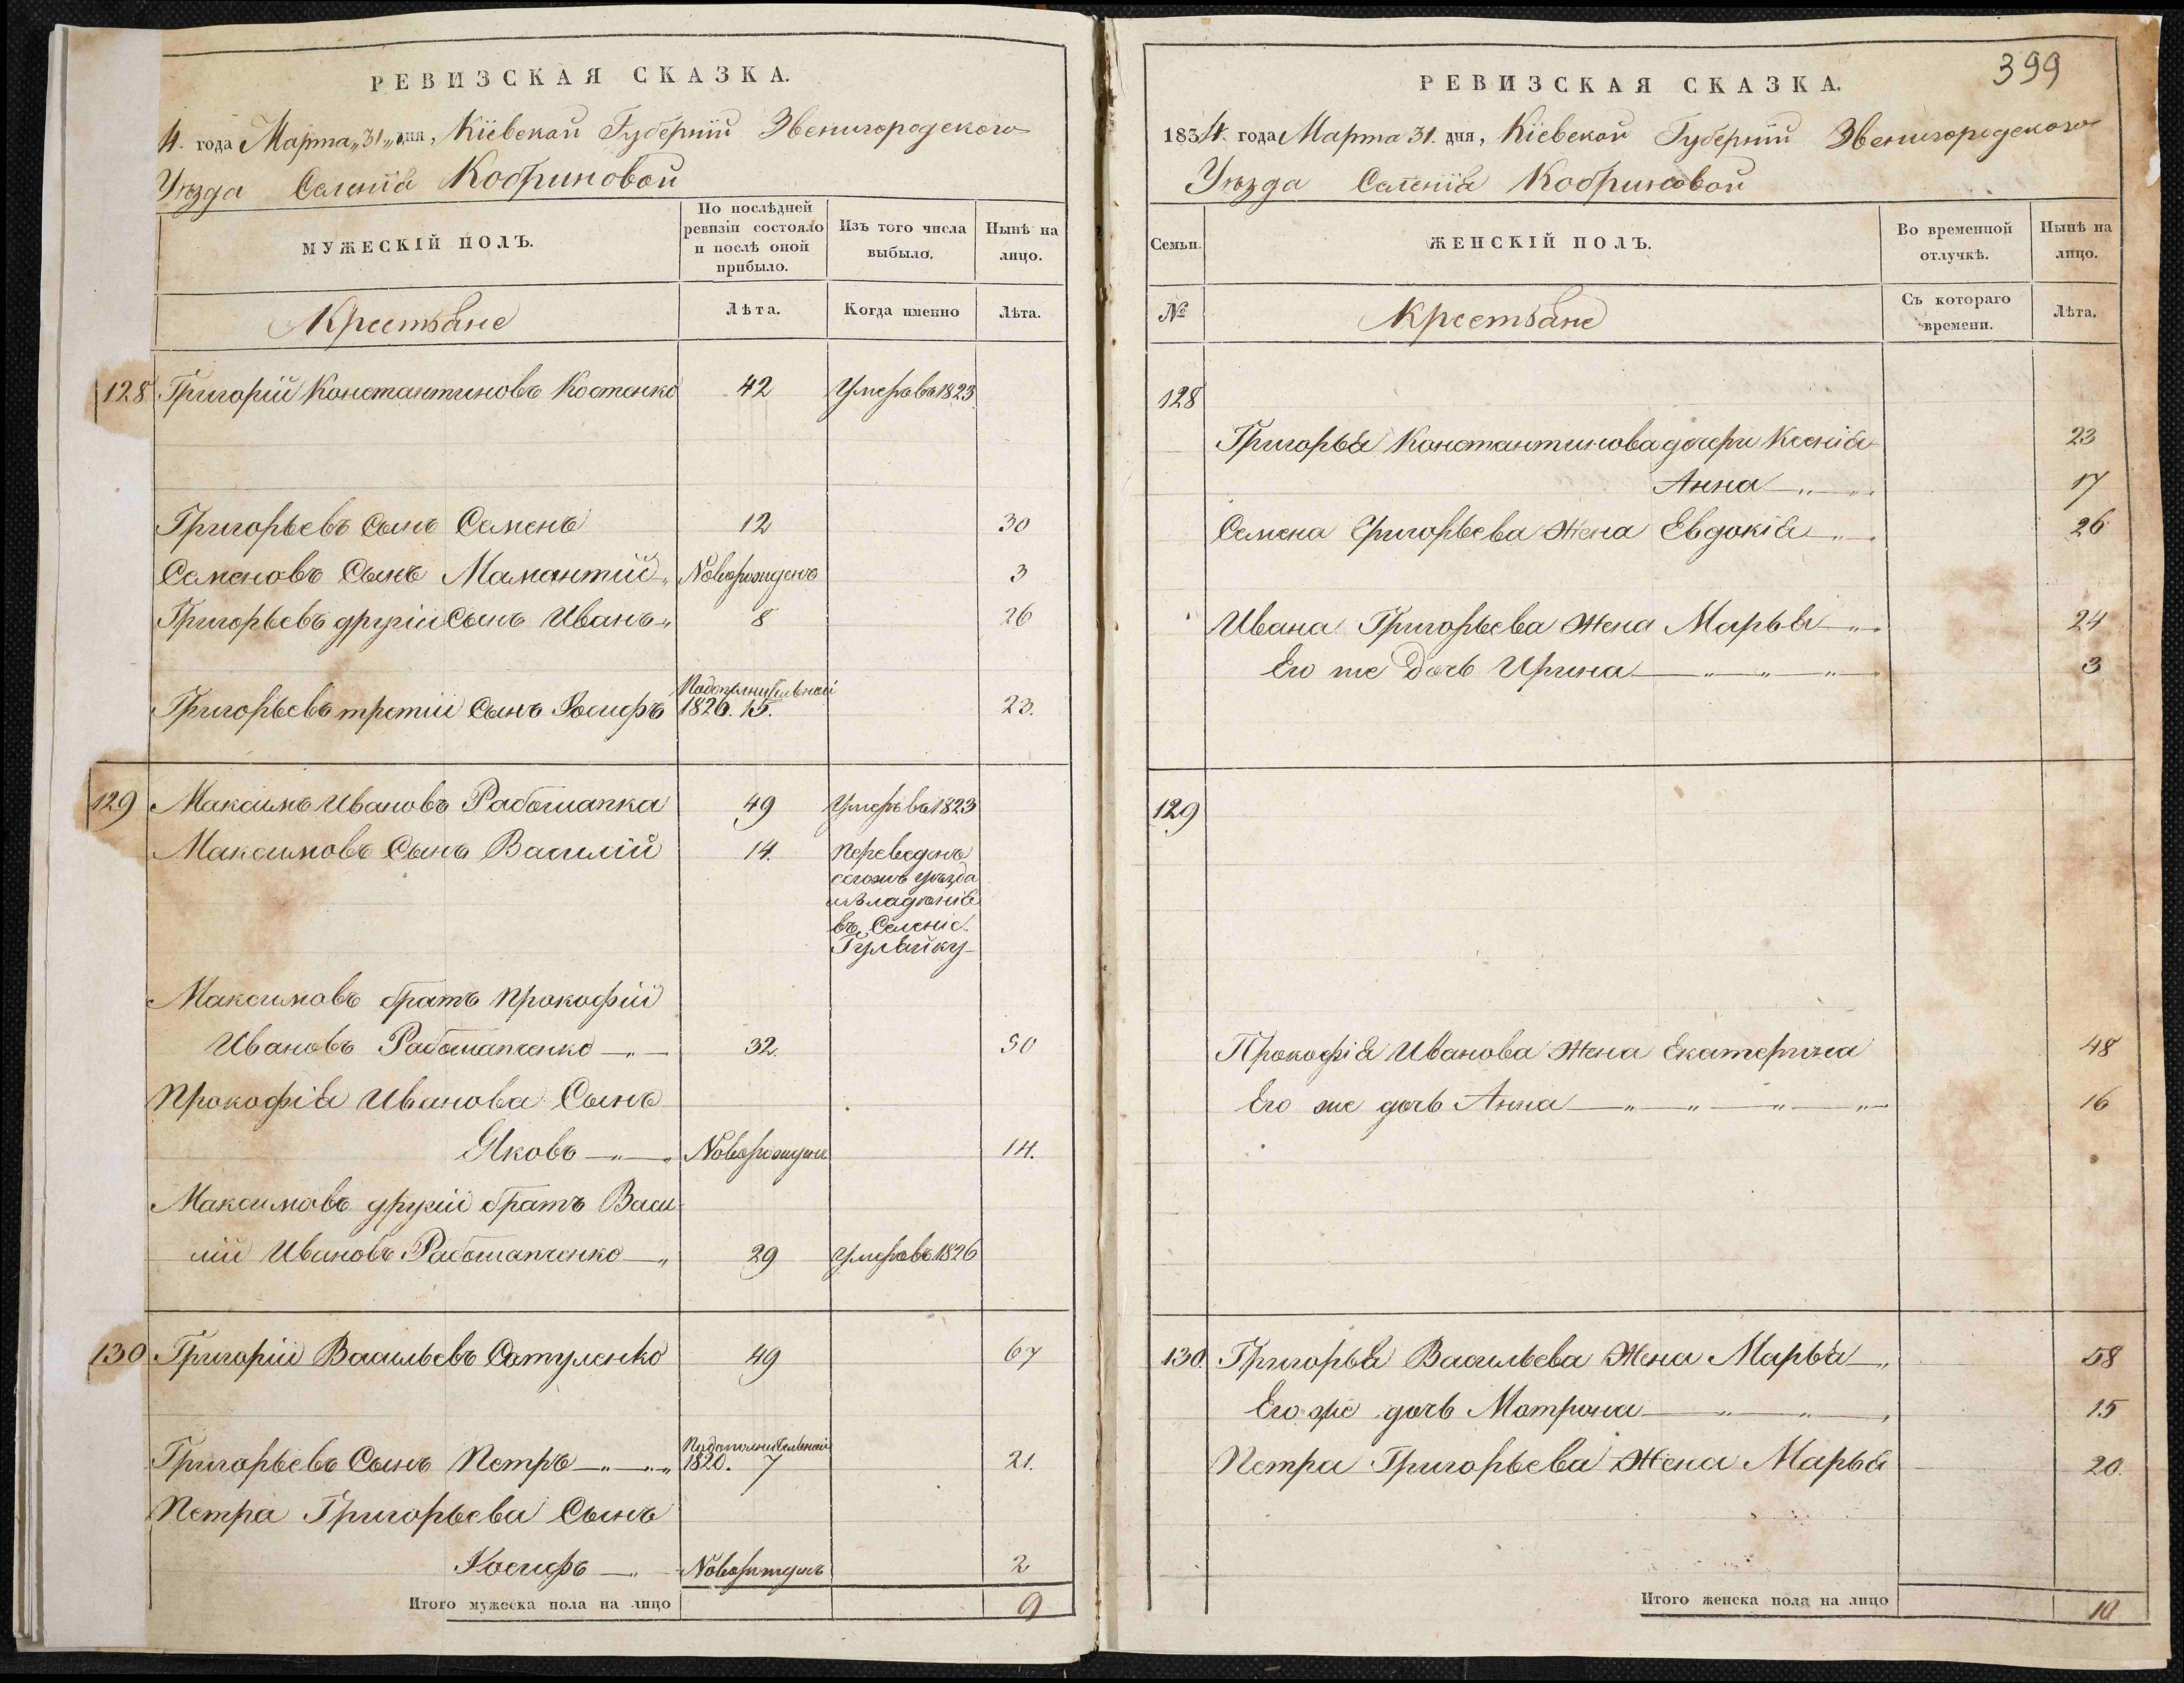 РЕВИЗСКАЯ СКАЗКА.
4. года Марта „31„ дня, Кіевской Губерніи Звенигородскаго
Уѣзда Селенія Кобриновой
МУЖЕСКІЙ ПОЛЪ.
По послѣдней ревизіи состояло и послѣ оной прибыло.
Изъ того числа выбыло.
Нынѣ на лицо.
Крестьяне
Лѣта.
Когда именно
Лѣта.
128 Григорій Константиновъ Костенко 42 Умеръ въ 1823
Григорьевъ Сынъ Семенъ 12 30
Семеновъ Сынъ Мамантій „ Новорожденъ 3
Григорьевъ другій Сынъ Иванъ „ 8 26
Григорьевъ третій Сынъ Іосифъ По дополнительной 1826. 15. 23.
129 Максимъ Ивановъ Рабошапка 49 Умеръ въ 1823
Максимовъ Сынъ Василій 14. Переведенъ
сегожъ уѣзда
и владѣнія
въ Селеніе
Гуляйку
Максимовъ братъ Прокофій
Ивановъ Рабошапченко — „ — 32. 50
Прокофія Иванова Сынъ
Яковъ — „ — „ Новорожденъ 14.
Максимовъ другій братъ Васи
лій Ивановъ Рабошапченко — „ 29 Умеръ въ 1826
130 Григорій Васильевъ Сатуленко 49 67
Григорьевъ Сынъ Петръ — „ — „ По дополнительной 1820. 7 21.
Петра Григорьева Сынъ
Іосифъ — „ — Новорожденъ 2
Итого мужеска пола на лицо 9
399
РЕВИЗСКАЯ СКАЗКА.
1834. года Марта 31. дня, Кіевской Губерніи Звенигородскаго
Уѣзда Селенія Кобриновой
Семьи.
ЖЕНСКІЙ ПОЛЪ.
Во временной отлучкѣ.
Нынѣ на лицо.
№
Крестьяне
Съ котораго времени.
Лѣта.
128
Григорья Константинова дочери Ксенія 23
Анна — „ — „ 17
Семена Григорьева Жена Евдокія — „ — 26
Ивана Григорьева Жена Марья — „ — 24
Его же Дочь Ирина — „ — „ — „ — 3
129
Прокофія Иванова Жена Екатерина 48
Его же дочь Анна — „ — „ — „ — „ — 16
130. Григорья Васильева Жена Марья — „ 58
Его же дочь Матрона — „ — „ — „ 15
Петра Григорьева Жена Марья 20.
Итого женска пола на лицо 10